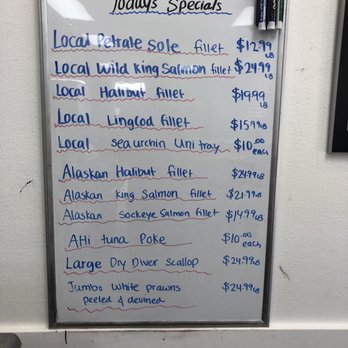 Todays Specials
Local Petrale Sole fillet $12.99 LB
Local Wild King Salmon fillet $24.99 LB
Local Halibut fillet $19.99 LB
Local Lingcod fillet $15.99 LB
Local sea urchin Uni tray $10.00 each
Alaskan Halibut fillet $24.99 LB
Alaskan King Salmon fillet $21.99 LB
Alaskan Sockeye Salmon fillet $14.99 LB
AHi tuna Poke $10.00 each
Large Dry Diver Scallop $24.99 LB
Jumbo White prawns $24.99 LB
peeled & devined